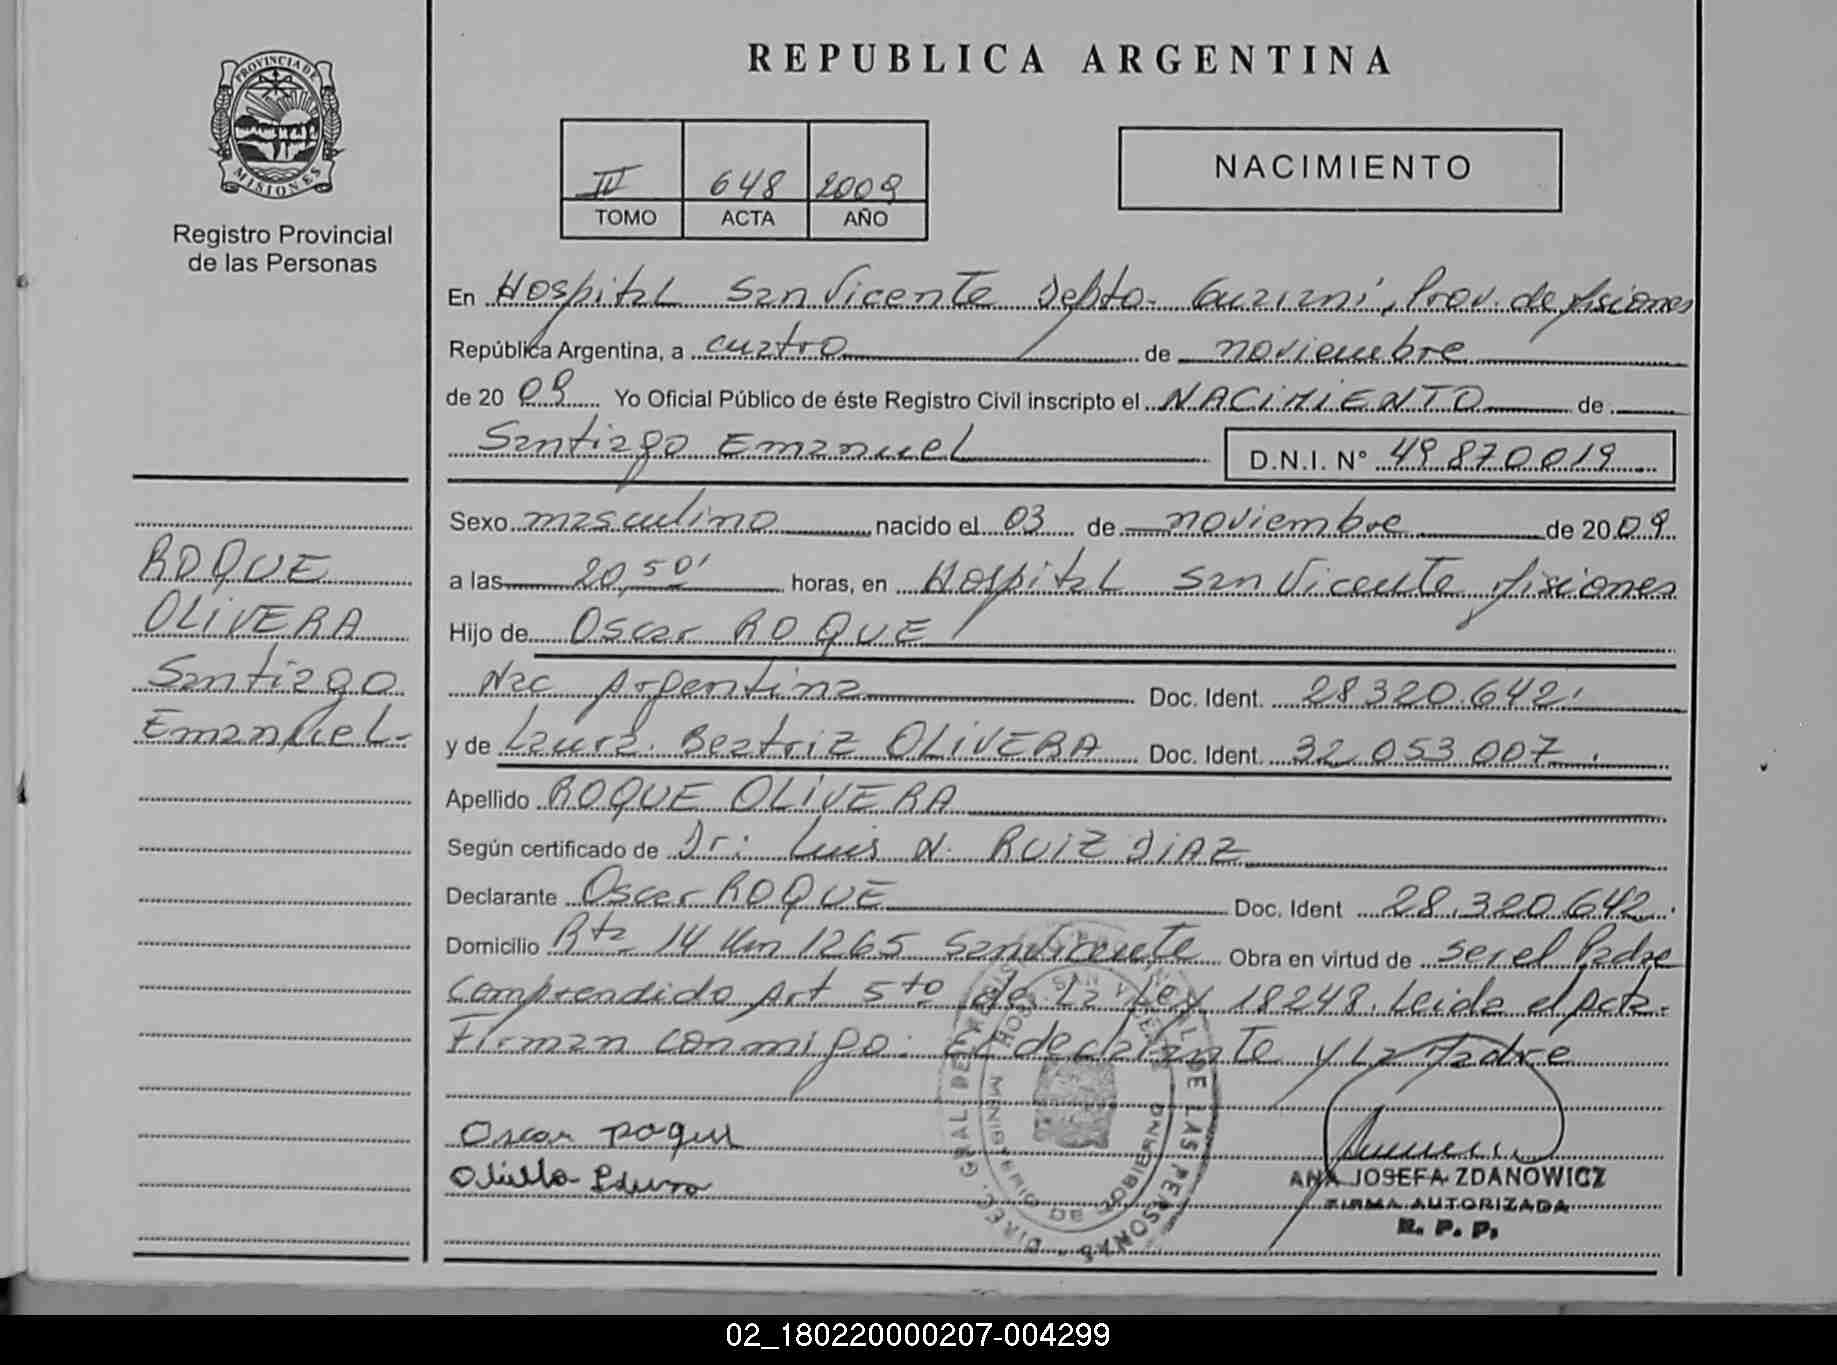 PROVINCIA DE
MISIONES
Registro Provincial
de las Personas
ROQUE
OLIVERA
Santiago
Emanuel.-
REPUBLICA ARGENTINA
IV 648 2009
TOMO ACTA AÑO
NACIMIENTO
En Hospital San Vicente Depto. Guaraní, Prov. de Misiones
República Argentina, a cuatro de noviembre
de 2009 Yo Oficial Público de éste Registro Civil inscripto el NACIMIENTO de
Santiago Emanuel D.N.I. N° 49.870019
Sexo masculino nacido el 03 de noviembre de 2009
a las 20,50' horas, en Hospital San Vicente Misiones
Hijo de Oscar ROQUE
Nac Argentina Doc. Ident. 28320.642.
y de Laura Beatriz OLIVERA Doc. Ident. 32.053.007.
Apellido ROQUE OLIVERA
Según certificado de Dr: Luis N. RUIZ DIAZ
Declarante Oscar ROQUE Doc. Ident 28.320.642.
Domicilio Rta 14 Km 1265 San Vicente Obra en virtud de ser el Padre
Comprendido Art 5to de la Ley 18248. Leida el Acta.
Firman conmigo: el declarante y la Madre
Oscar roque
ANA JOSEFA ZDANOWICZ
FIRMA AUTORIZADA
R. P. P.
02_180220000207-004299